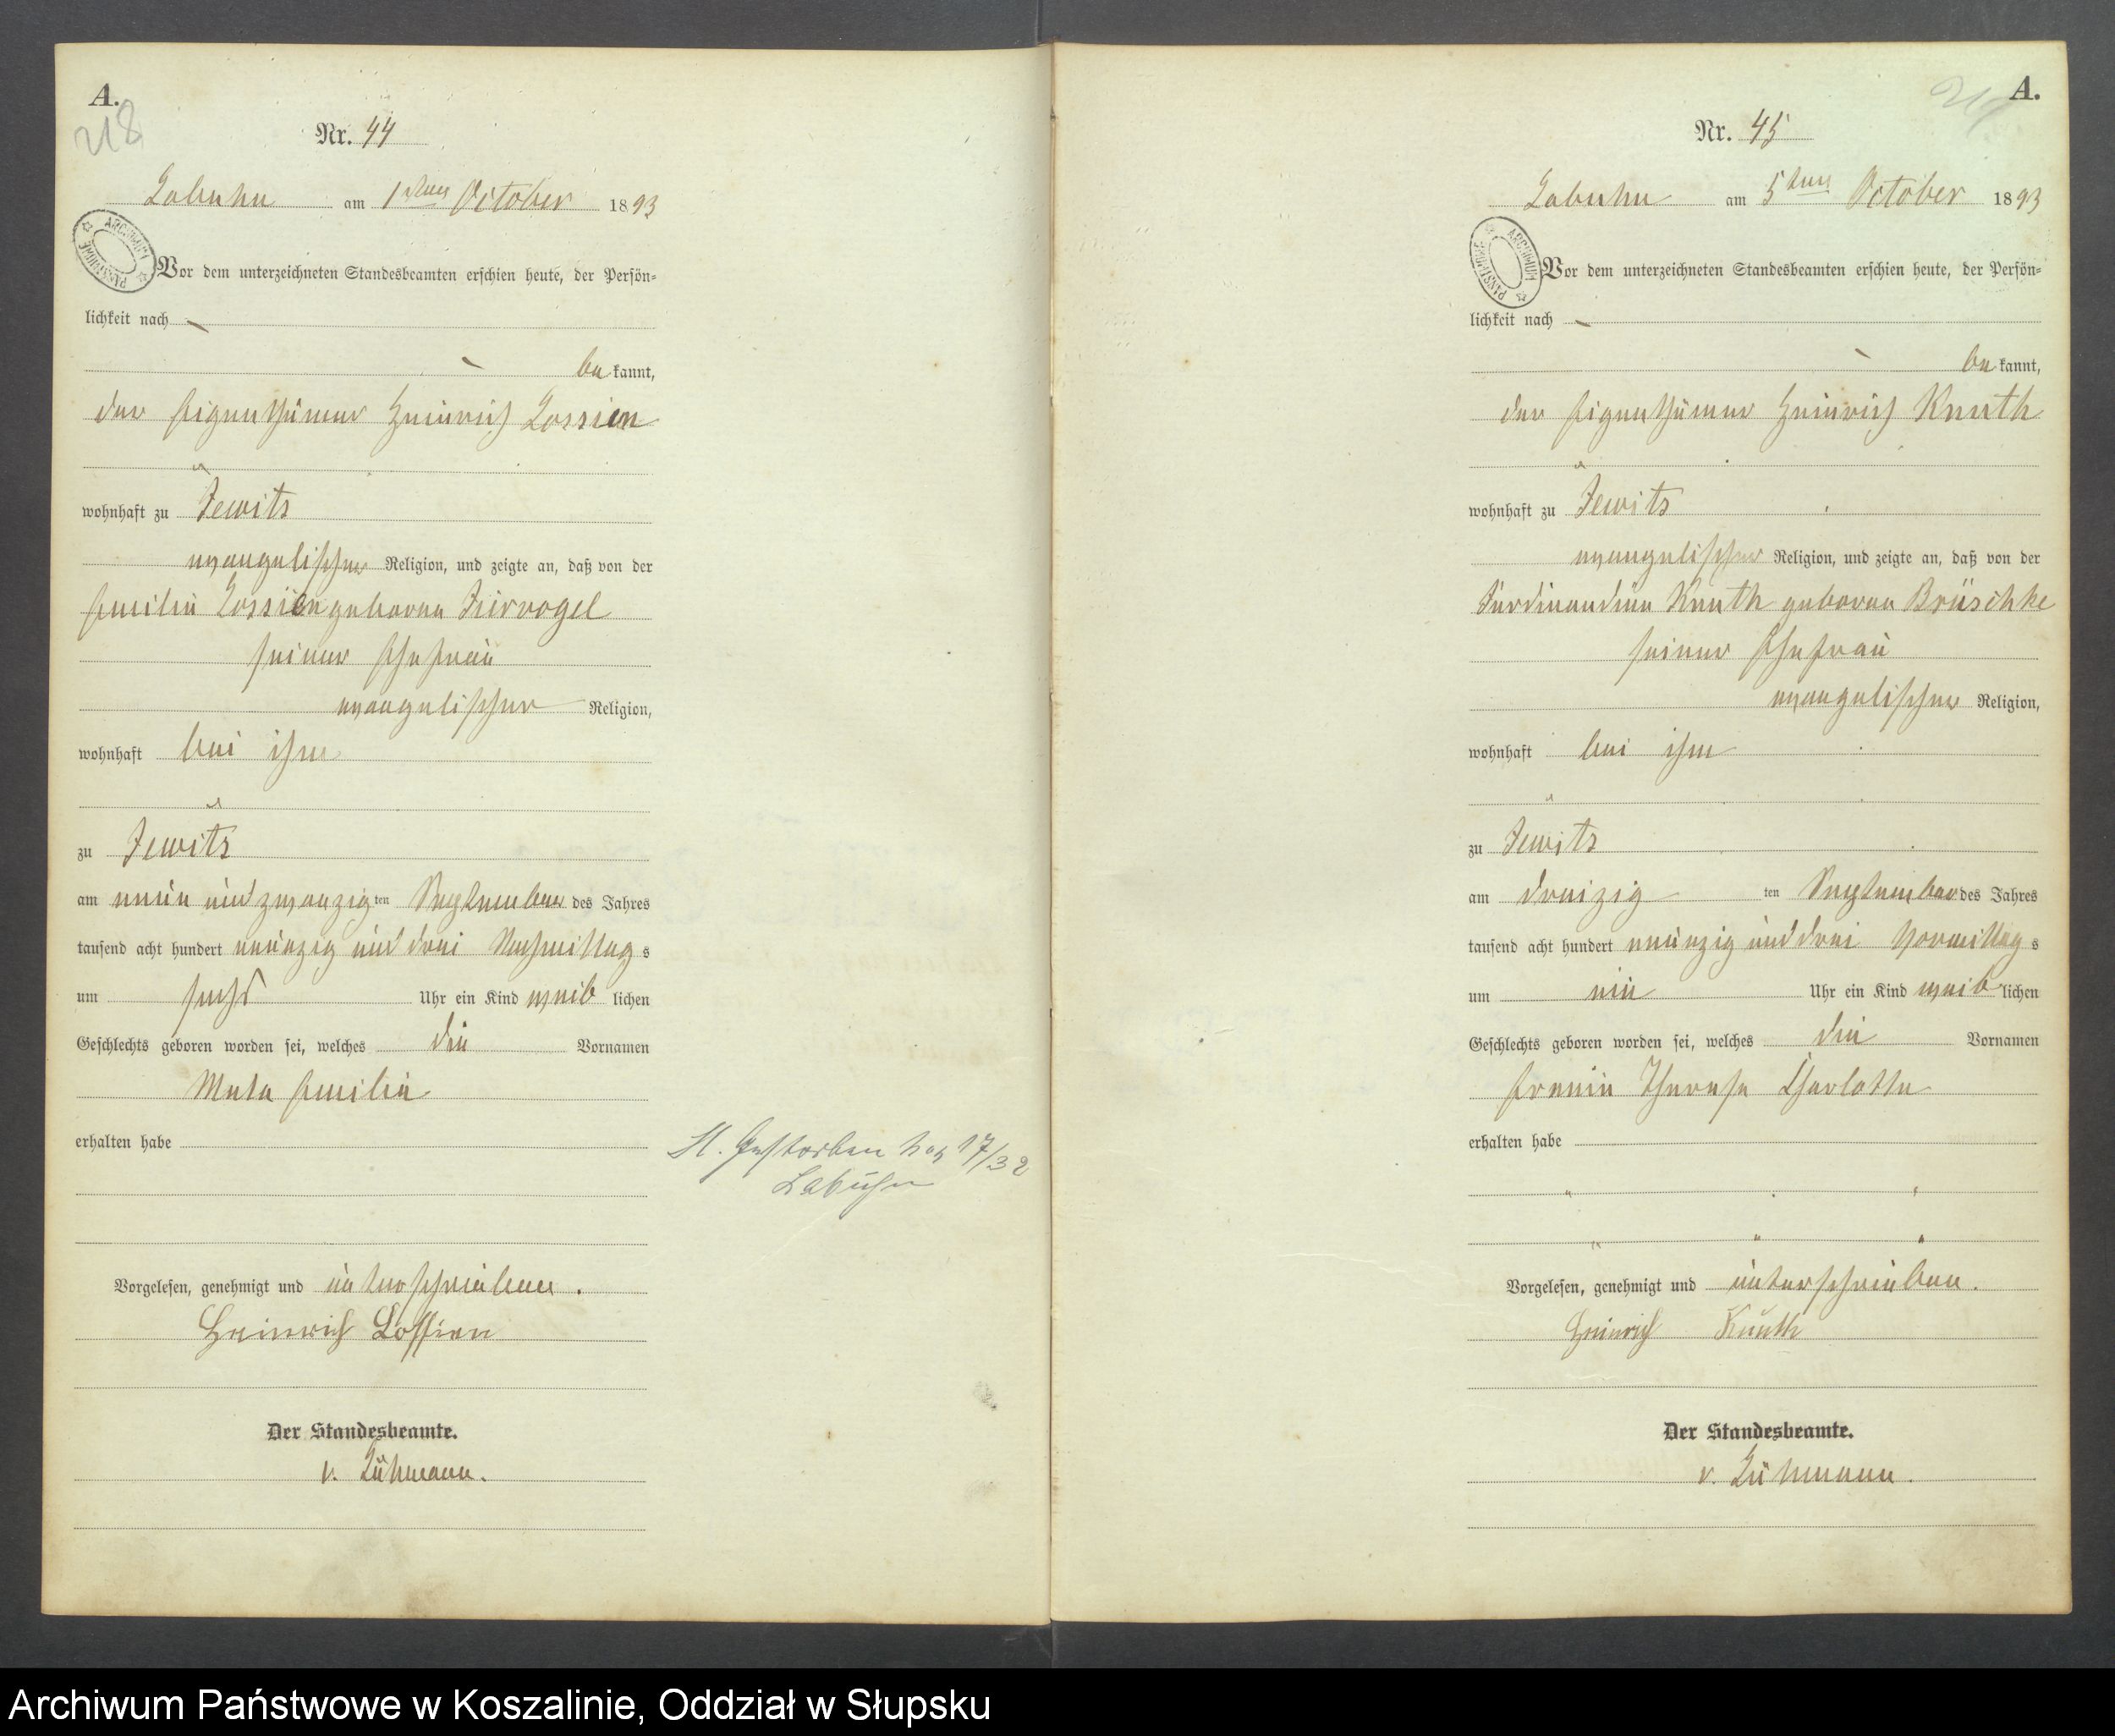 A.
218
Nr. 44
Labuhn am 1ten October 1893
ARCHIWUM PAŃSTWOWE
Vor dem unterzeichneten Standesbeamten erschien heute, der Persön-
lichkeit nach
be kannt,
der Eigenthümer Heinrich Lossien
wohnhaft zu Jewitz
evangelischer Religion, und zeigte an, daß von der
Emilie Lossien geborene Ziervogel
seiner Ehefrau
evangelischer Religion,
wohnhaft bei ihm
zu Jewitz
am neun und zwanzig ten September des Jahres
tausend acht hundert neunzig und drei Nachmittag s
um sechs Uhr ein Kind weib lichen
Geschlechts geboren worden sei, welches die Vornamen
Meta Emilie
erhalten habe
St. Gestorben No 17/32
Labuhn
Vorgelesen, genehmigt und unterschrieben.
Heinrich Lossien
Der Standesbeamte.
A.
Nr. 45
Labuhn am 5ten October 1893
ARCHIWUM PAŃSTWOWE
Vor dem unterzeichneten Standesbeamten erschien heute, der Persön-
lichkeit nach
be kannt,
der Eigenthümer Heinrich Knuth
wohnhaft zu Jewitz
evangelischer Religion, und zeigte an, daß von der
Ferdinandine Knuth geborene Brüschke
seiner Ehefrau
evangelischer Religion,
wohnhaft bei ihm
zu Jewitz
am dreizig ten September des Jahres
tausend acht hundert neunzig und drei Vormittag s
um ein Uhr ein Kind weib lichen
Geschlechts geboren worden sei, welches die Vornamen
Therese Charlotte
erhalten habe
Vorgelesen, genehmigt und unterschrieben.
Heinrich Knuth
Der Standesbeamte.
Archiwum Państwowe w Koszalinie, Oddział w Słupsku